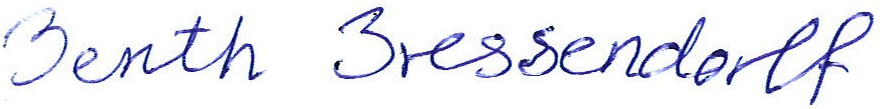 Benth Bressendorff